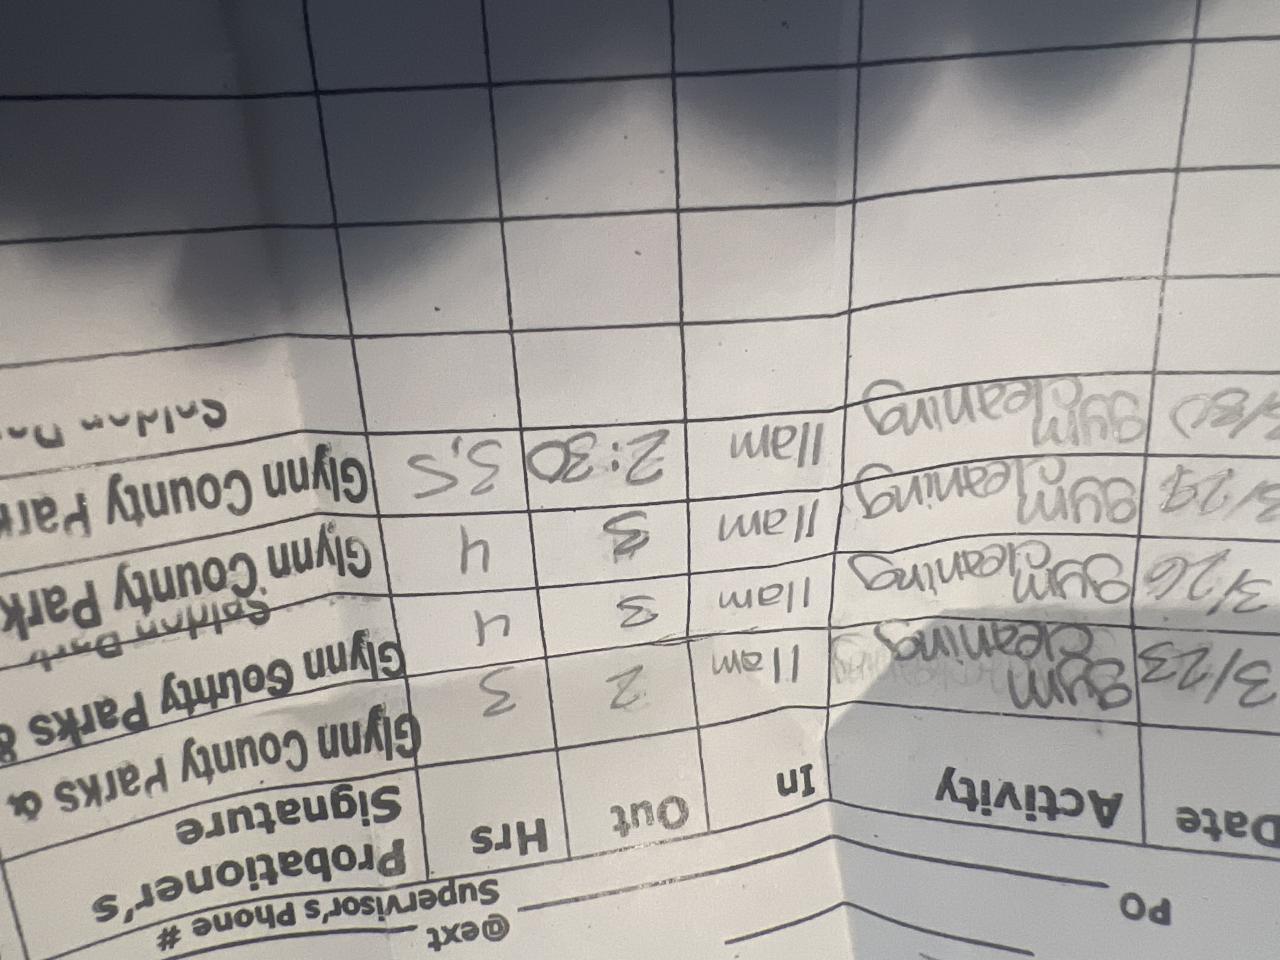 @ext
Supervisor's Phone #
PO
Date Activity In Out Hrs Probationer's Signature
3/23 gym cleaning 11am 2 3 Glynn County Parks &
3/26 gym cleaning 11am 3 4 Glynn County Parks &
3/29 gym cleaning 11am 3 4 Glynn County Park
3/30 gym cleaning 11am 2:30 3,5 Glynn County Park